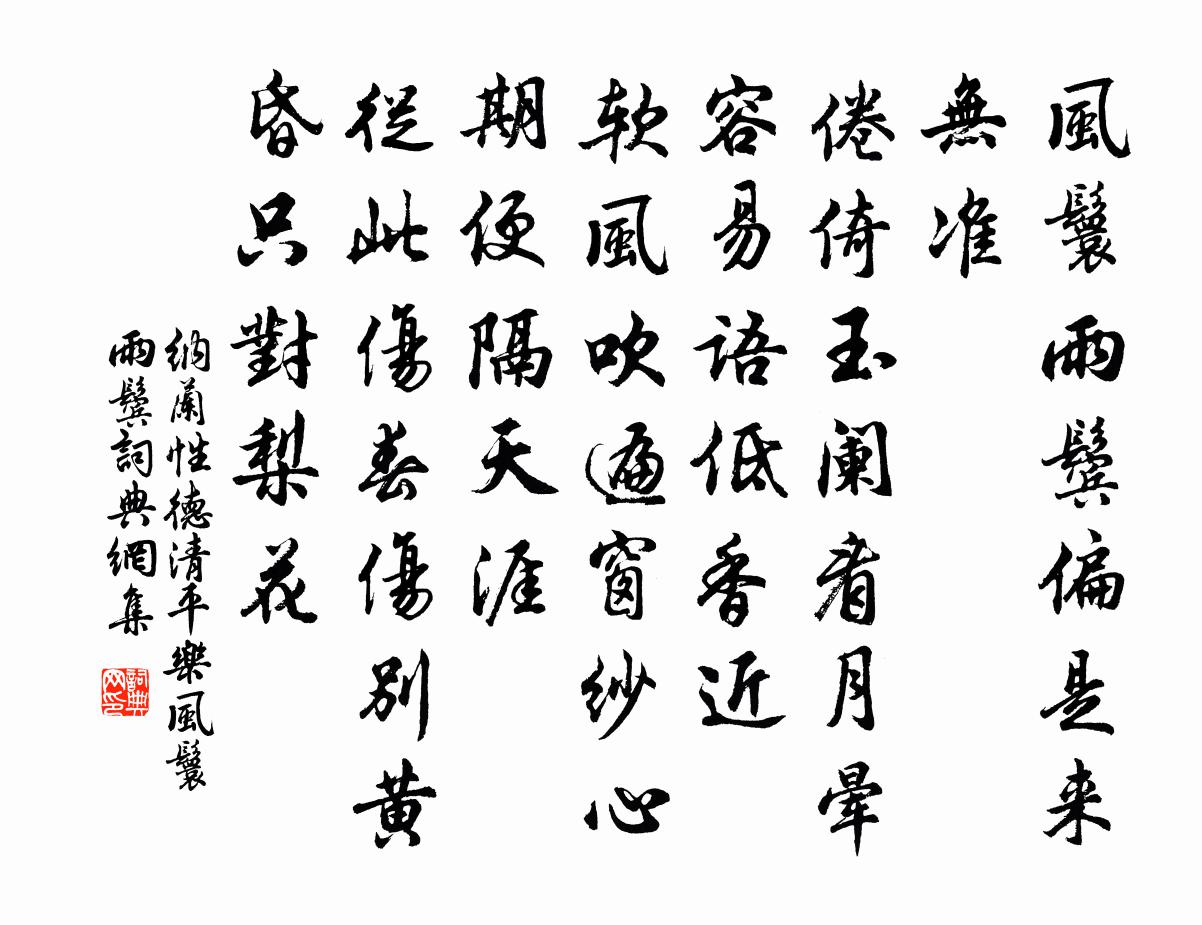 風鬟雨鬢偏是来
無准
倦倚玉阑看月暈
容易語低香近
軟風吹遍窗紗心
期便隔天涯
從此傷春傷別黄
昏只對梨花
納蘭性德清平樂風鬟
雨鬢詞典網集
詞典网印